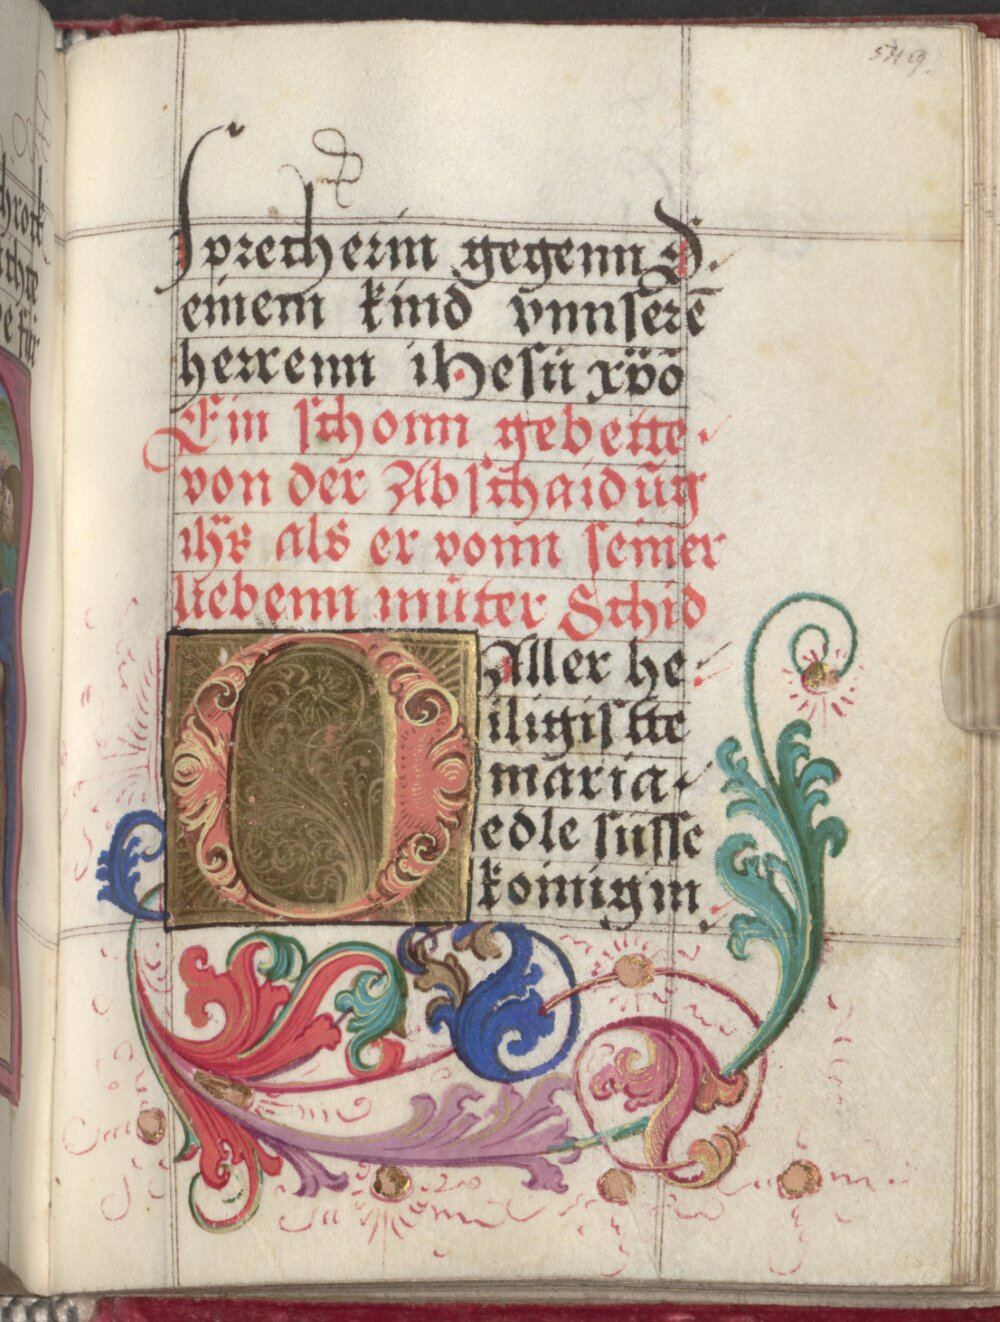 549.
sprecherin gegenn D.
einem kind vnnserē
herrenn ihesu xpō
Ein schonn gebette.
von der Abschaidūg
ihs als er vonn seiner
liebenn mūter Schid
O Aller he-
iligiste
maria.
edle susse
konigin